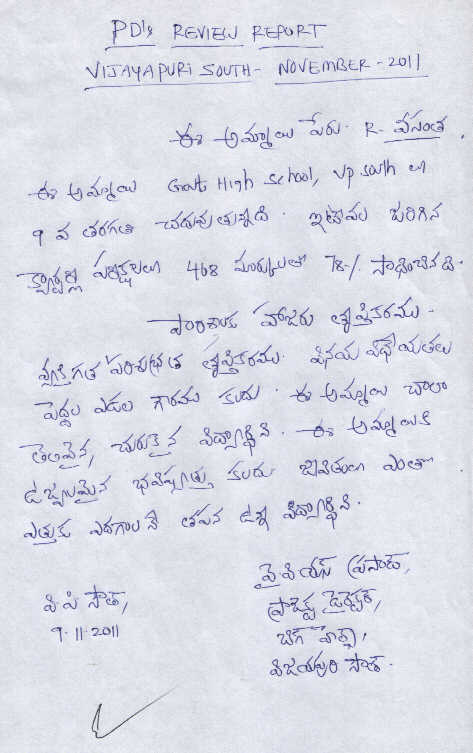 PD's REVIEW REPORT
VIJAYAPURI SOUTH - NOVEMBER - 2011
ఈ అమ్మాయి పేరు. R. వసంత.
ఈ అమ్మాయి Govt High School, Vp South లో
9 వ తరగతి చదువుతున్నది. ఇటీవల జరిగిన
క్వార్టర్లీ పరీక్షలలో 468 మార్కులతో 78%. సాధించినది.
పాఠశాలకు హాజరు తృప్తికరము.
వ్యక్తిగత పరిశుభ్రత తృప్తికరము. వినయ విధేయతలు
పెద్దల ఎడల గౌరవము కలదు. ఈ అమ్మాయి చాలా
తెలివైన, చురుకైన విద్యార్థిని. ఈ అమ్మాయికి
ఉజ్వలమైన భవిష్యత్తు కలదు. జీవితంలో ఎంతో
ఎత్తుకు ఎదగాలనే తపన ఉన్న విద్యార్థిని.
వై వి యస్ ప్రసాద్,
వి.పి సౌత్,
ప్రాజెక్ట్ డైరెక్టర్,
9.11.2011
విజయపురి సౌత్.